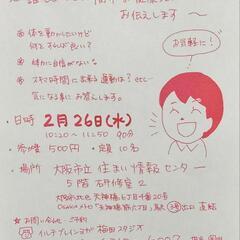 お伝えします ～
お気軽に！
※ 体を動かしたいけど
何をすれば良い？
※ 体力に自信がない
※ スキマ時間に出来る運動は？etc…
気になる事にお答えします。
・日時 2月26日(水)
10:20 ～ 11:50 90分
・参加費 500円 ・定員 10名
・場所 大阪市立 住まい情報センター
5階 研修室2
大阪市北区 天神橋6丁目4番20号
Osaka metro「天神橋筋六丁目」駅 3号出口 直結
★お問い合せ・ご予約
イルチブレインヨガ 梅田スタジオ